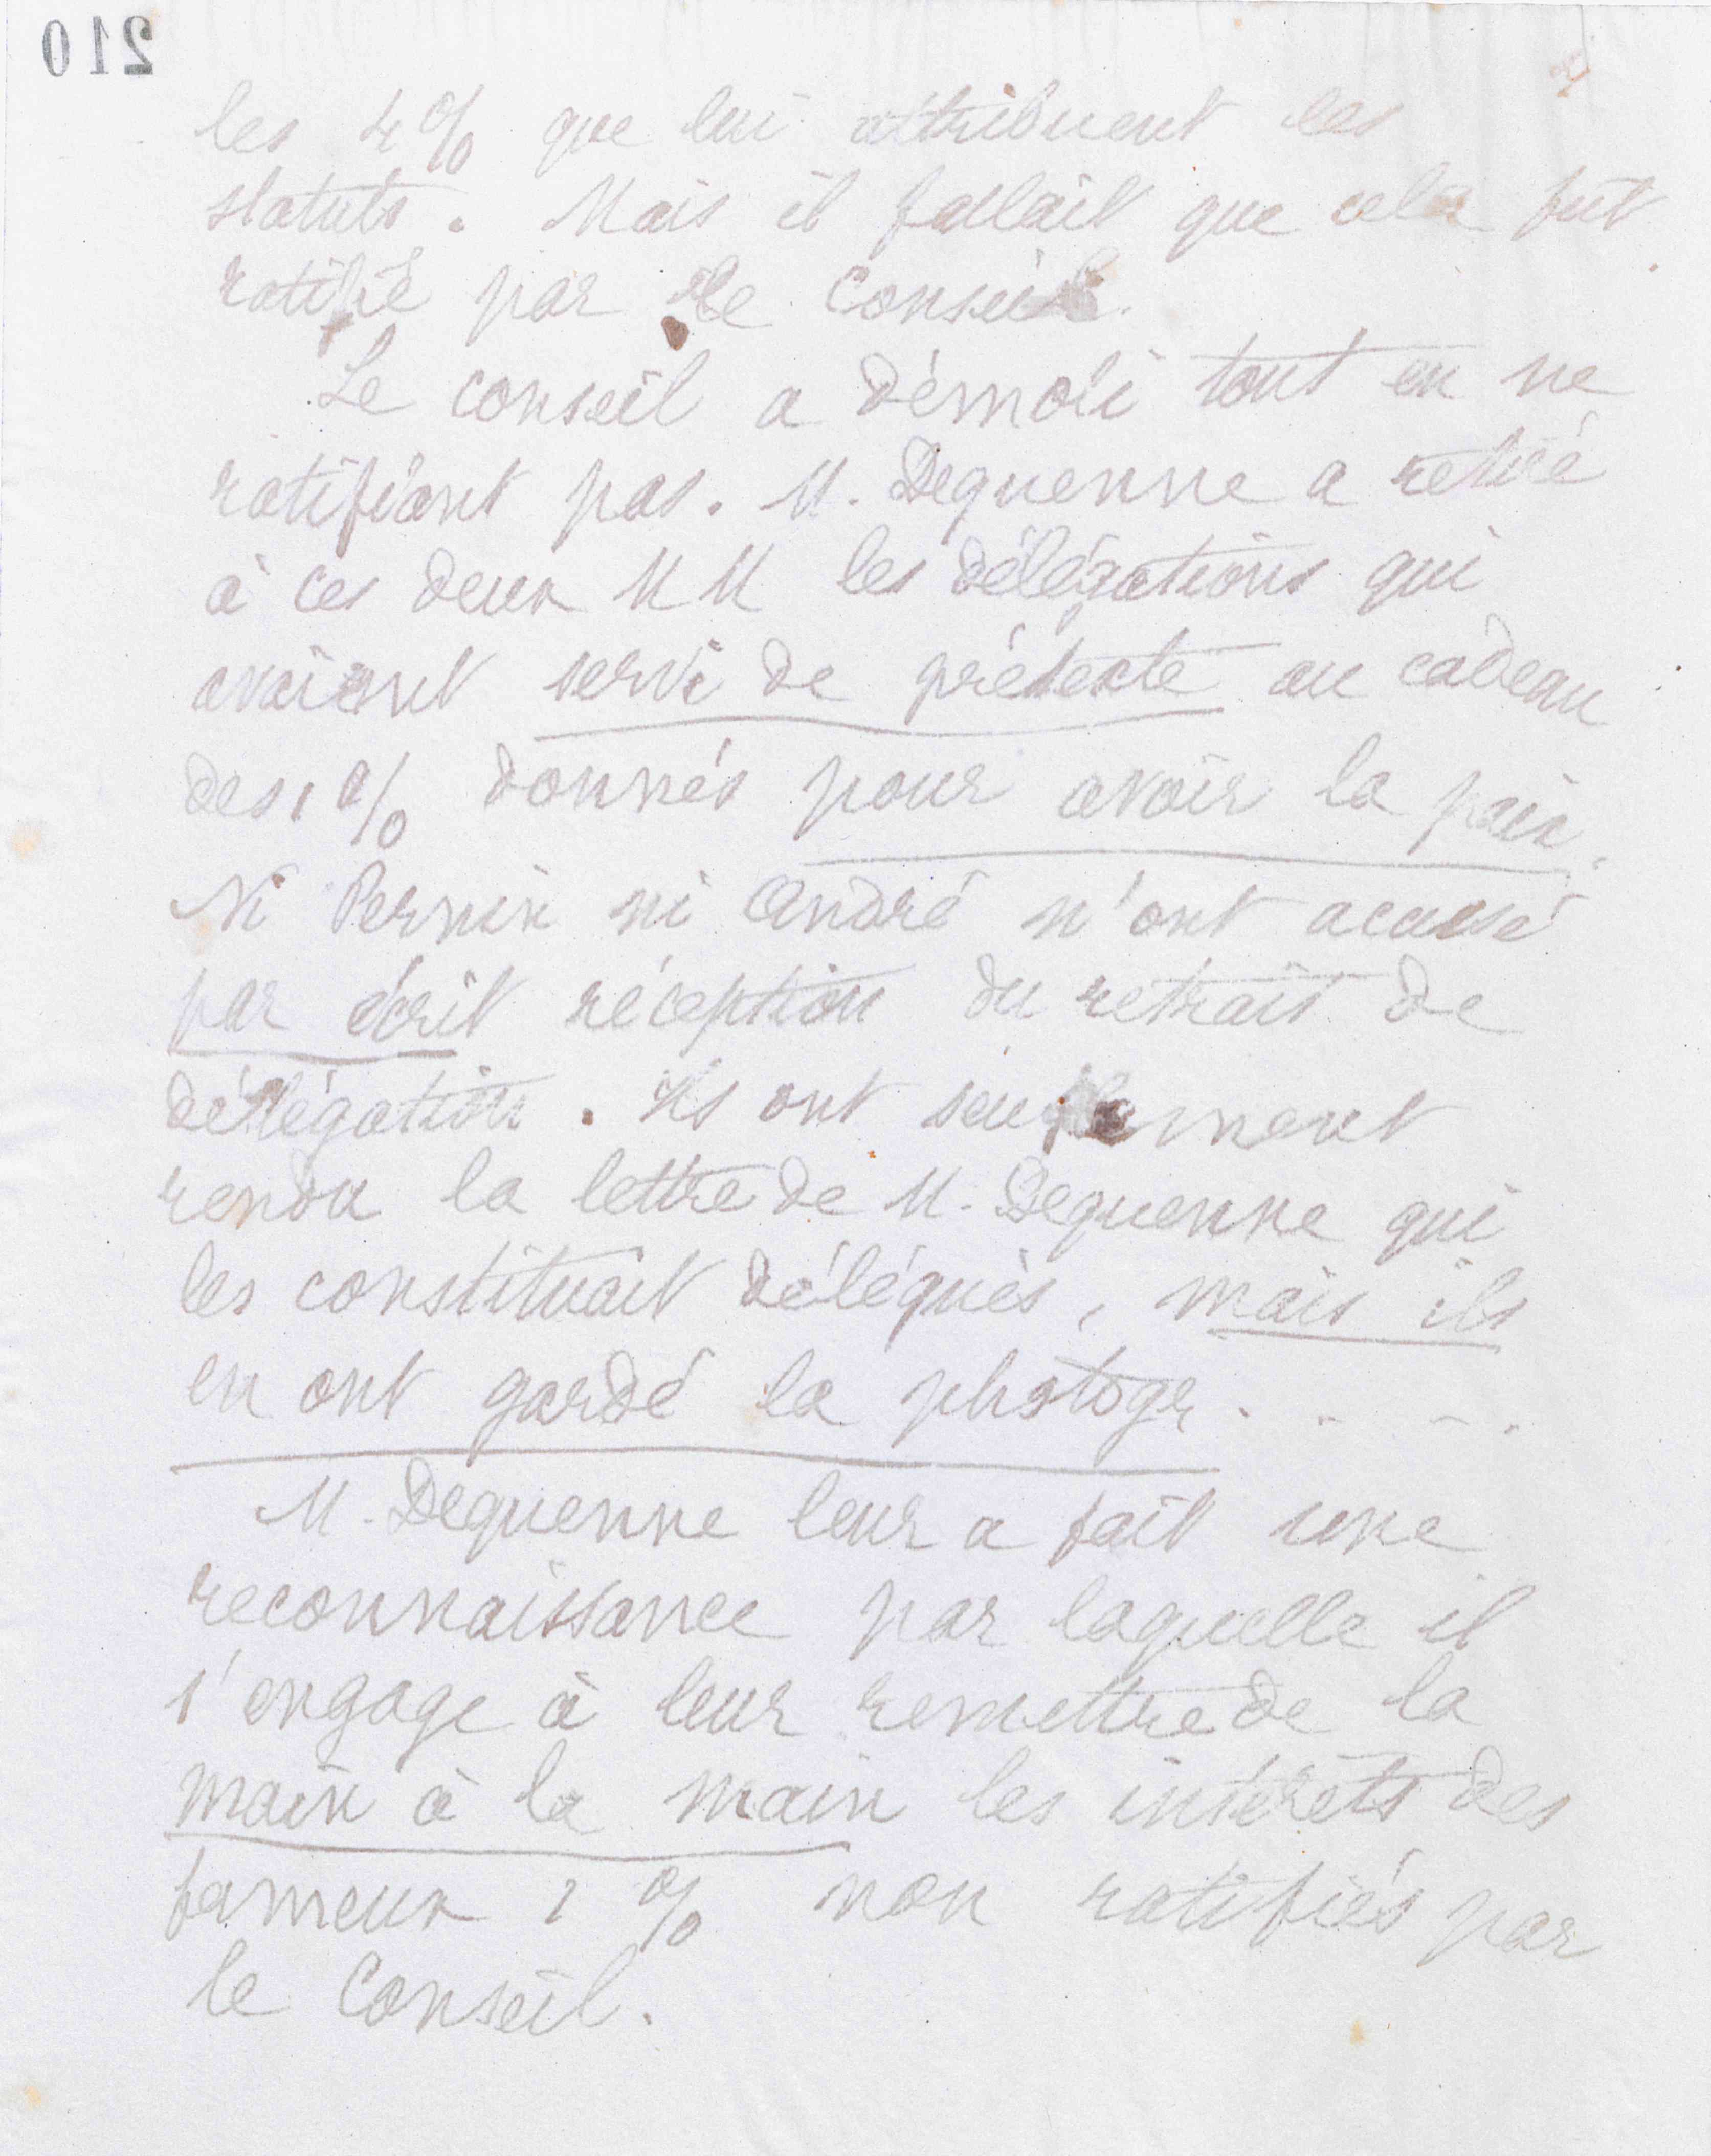 210
les 4 % que lui attribuent les
statuts. Mais il fallait que cela fut
ratifié par le Conseil.
Le conseil a démoli tout en ne
ratifiant pas. M. Dequenne a retiré
à ces deux MM les délégations qui
avaient servi de prétexte au cadeau
des 1 % donnés pour avoir la paix.
Ni Pernin ni André n'ont accusé
par écrit réception du retrait de
délégation. Ils ont seulement
rendu la lettre de M. Dequenne qui
les constituait délégués, mais ils
en ont gardé la photogr. . . . .
M. Dequenne leur a fait une
reconnaissance par laquelle il
s'engage à leur remettre de la
main à la main les intérêts des
fameux 1 % non ratifiés par
le Conseil.